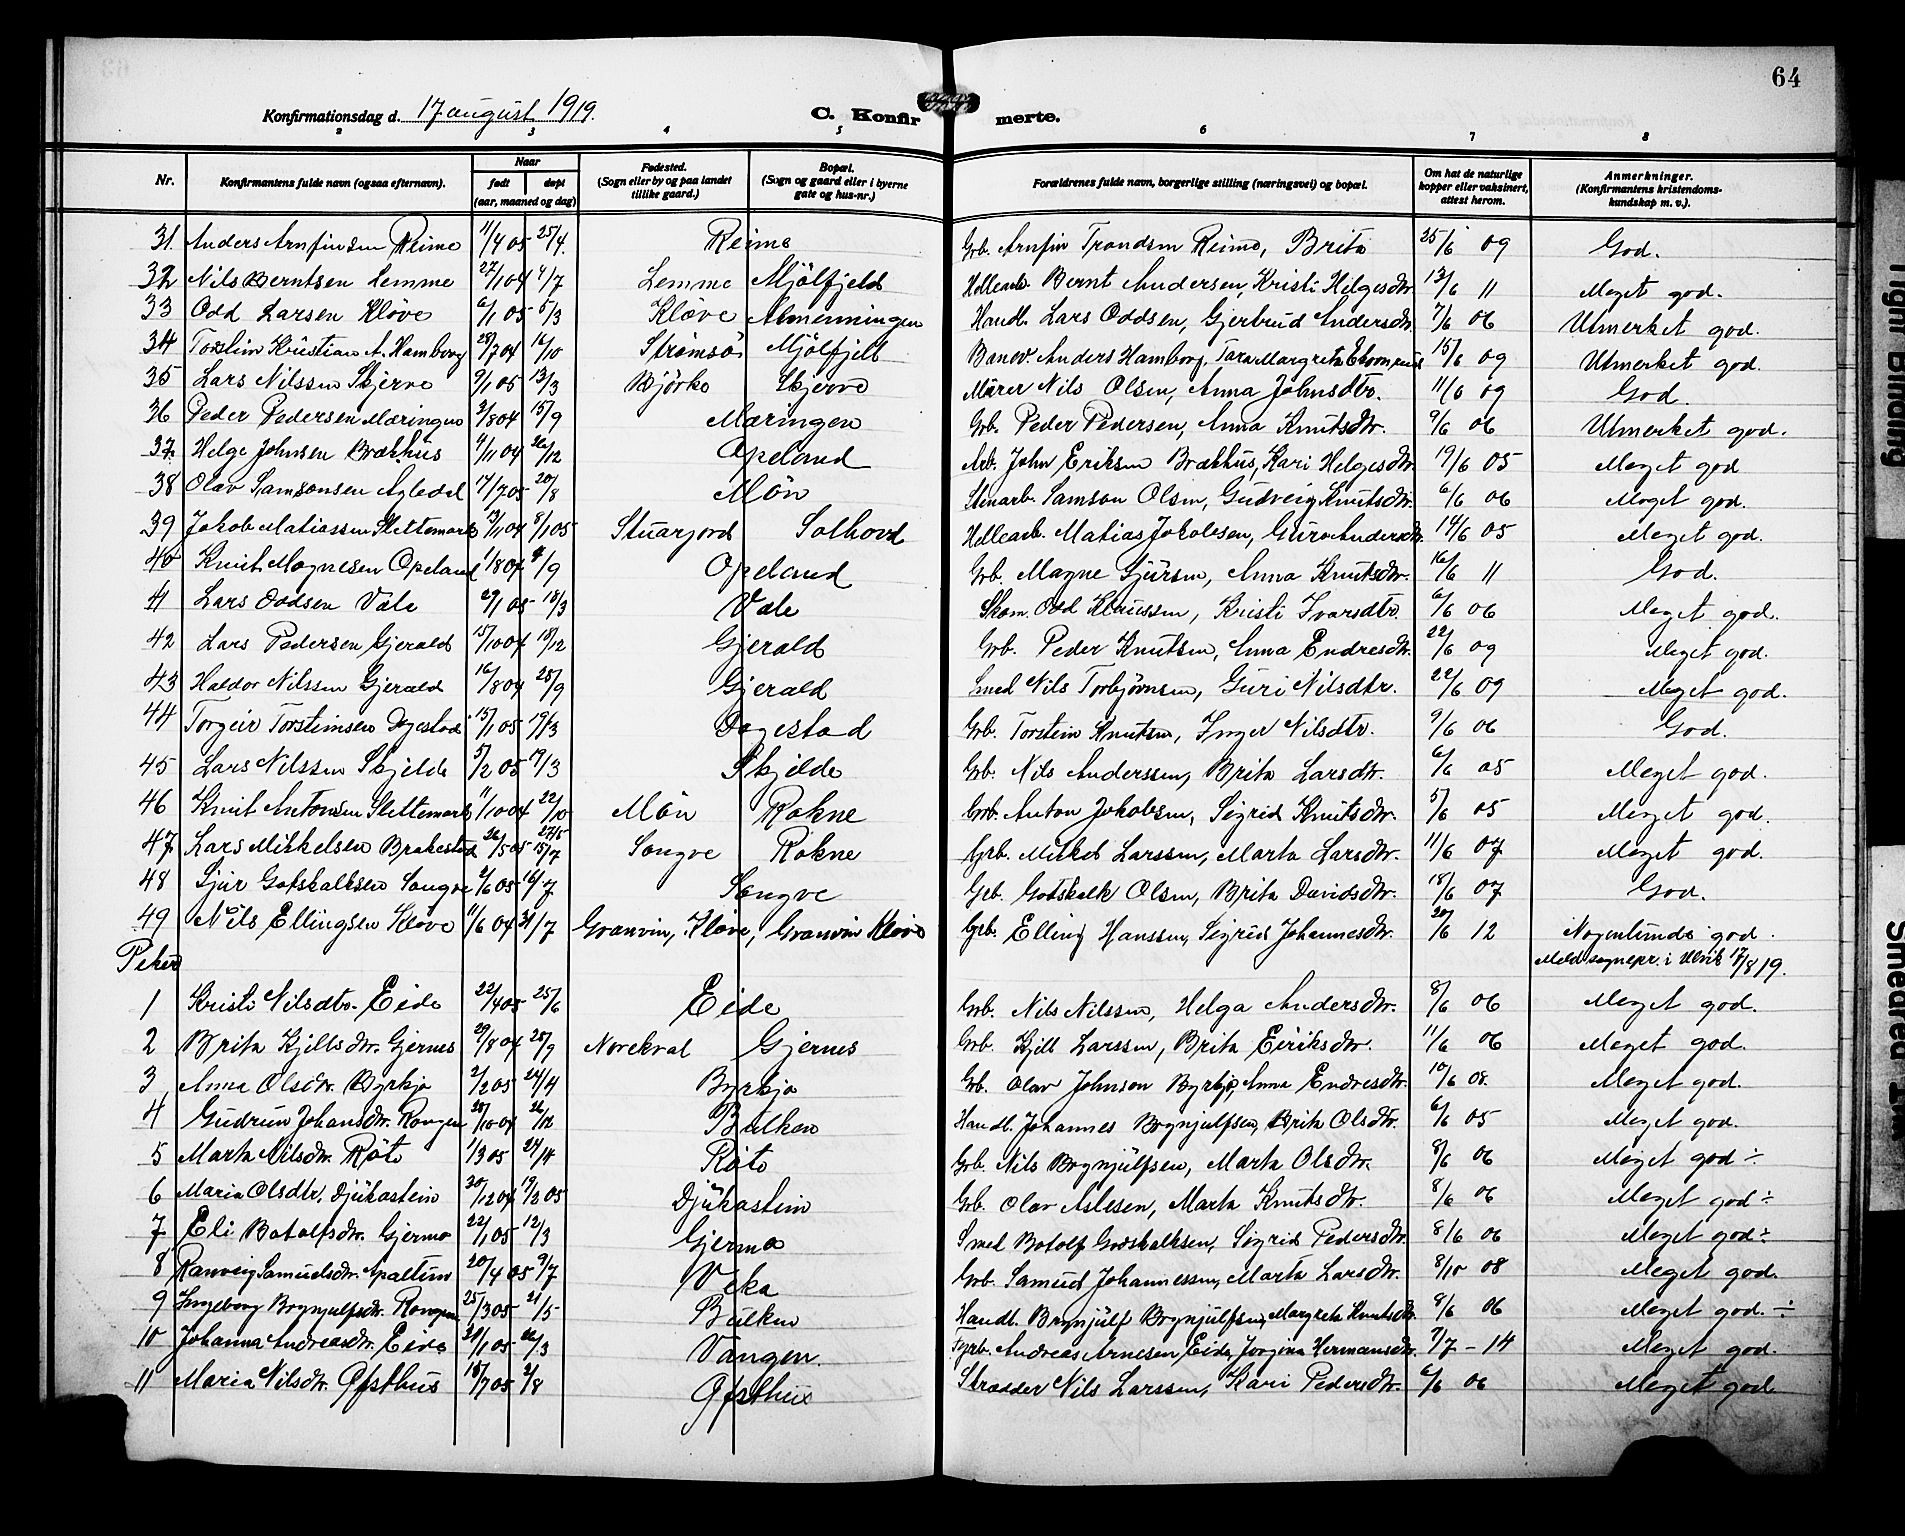 64
Konfirmationsdag d. 17 august 1919.
C. Konfirmerte.
2 3 4 5 6 7 8
Nr. Konfirmantens fulde navn (ogsaa efternavn). Naar født døpt (aar, maaned og dag) Fødested. (Sogn eller by og paa landet tillike gaard.) Bopæl. (Sogn og gaard eller i byerne gate og hus-nr.) Forældrenes fulde navn, borgerlige stilling (næringsvei) og bopæl. Om hat de naturlige kopper eller vaksinert, attest herom. Anmerkninger. (Konfirmantens kristendomskundskap m. v.).
31 Anders Arnfinsen Reime 11/4 05 25/4. Reime Grb. Arnfin Trondsen Reime, Brita 25/6 09 God.
32 Nils Berntsen Lemme 27/1 04 4/7 Lemme Mjölfjeld Hellearb. Bernt Andersen, Kristi Helgesdtr. 13/6 11 Meget god.
33 Odd Larsen Kløve 6/1 05 5/3 Kløve Almenningen Handl. Lars Oddsen, Gjertrud Andersdtr. 7/6 06 Utmerket god.
34 Torstin Kristian A. Hamborg 28/7 04 16/10 Strømsö Mjölfjell Banev. Anders Hamborg, Tara Margreta 15/6 09 Utmerket god.
35 Lars Nilssen Skjerve 9/1 05 13/3 Björke Skjerve Murer Nils Olsen, Anna Johnsdtr. 11/6 09 God.
36 Peder Pedersen Mæringen 3/8 04 15/9 Mæringen Grb. Peder Pedersen, Anna Knutsdtr. 9/6 06 Utmerket god.
37. Helge Johnsen Brækhus 4/11 04 26/12 Opeland Arb. John Eriksen Brækhus, Kari Helgesdtr. 19/6 05 Meget god
38 Olav Samsonsen Agledal 17/7 05 20/8 Mön Stenarb. Samson Olsen, Gudveig Knutsdtr. 6/6 06 Meget god.
39 Jakob Matiassen Slettemark 13/11 04 8/1 05 Stuarjord Solhovd Hellearb. Matias Jakobsen, Guro Andersdtr. 14/6 05 Meget god.
40 Knut Magnesen Opeland 1/8 04 4/9 Opeland Grb. Magne Sjursen, Anna Knutsdtr. 16/6 11 God.
41 Lars Oddsen Væle 29/1 05 18/3 Væle Skom. Odd Klaussen, Kristi Ivarsdtr. 6/6 06 Meget god.
42 Lars Pedersen Gjerald 15/10 04 18/12 Gjerald Grb. Peder Knutsen, Anna Endresdtr. 22/6 09 Meget god.
43 Haldor Nilssen Gjerald 16/8 04 25/9 Gjerald Smed Nils Torbjørnsen, Guri Nilsdtr. 22/6 09 Meget god.
44 Torgeir Torsteinsen Dagestad 15/1 05 19/3 Dagestad Grb. Torstein Knutsen, Inger Nilsdtr. 9/6 06 God.
45 Lars Nilssen Skjelde 5/2 05 19/3 Skjelde Grb. Nils Anderssen, Brita Larsdtr. 6/6 05 Meget god.
46 Knut Antonsen Slettemark 11/10 04 22/10 Mön Rokne Grb. Anton Jakobsen, Sigrid Knutsdtr. 5/6 05 Meget god.
47 Lars Mikkelsen Brakestad 26/5 05 27/5 15/7 Songve Rokne Grb. Mikkel Larssen, Marta Larsdtr. 11/6 07 Meget god.
48 Sjur Gotskalksen Songve 2/6 05 16/7 Songve Grb. Gotskalk Olsen, Brita Davidsdtr. 18/6 07 God.
49 Nils Ellingsen Kløve 11/6 04 31/7 Granvin, Kløve, Granvin Kløve Grb. Elling Hanssen, Sigrid Johannesdtr. 20/6 12 Nogenlunde god.
Meld. sognepr. i Ulvik 17/8 19.
Piker
1 Kristi Nilsdtr. Eide 22/4 05 25/6 Eide Grb. Nils Nilssen, Helga Andersdtr. 8/6 06 Meget god.
2 Brita Kjellsdtr. Gjernes 29/8 04 25/9 Norekval Gjernes Grb. Kjell Larssen, Brita Eiriksdtr. 11/6 06 Meget god.
3 Anna Olsdtr. Byrkje 2/2 05 24/4 Byrkje Grb. Olav Johnson Byrkje, Anna Endresdtr. 10/6 08. Meget god.
4 Gudrun Johansdtr. Rongen 20/10 04 26/12 Bulken Handl. Johannes Brynjulfsen, Brita Olsdtr. 6/6 05 Meget god.
5 Marta Nilsdtr. Røte 1/3 05 24/4 Røte Grb. Nils Brynjulfsen, Marta Olsdtr. 8/6 06 Meget god ÷
6 Maria Olsdtr. Djukastein 20/12 04 19/2 05 Djukastein Grb. Olav Aslesen, Marta Knutsdtr. 8/6 06 Meget god ÷
7 Eli Botolfsdtr. Gjerme 22/1 05 12/3 Gjerme Smed Botolf Godskalksen, Sigrid Pedersdtr. 8/6 06 Meget god ÷
8 Ranveig Samuelsdtr. Apaltun 20/4 05 9/7 Veka Grb. Samuel Johannessen, Marta Larsdtr. 8/10 08 Meget god.
9 Ingeborg Brynjulfsdtr. Rongen 25/3 05 21/5 Bulken Handl. Brynjulf Brynjulfsen, Margreta Knutsdtr. 8/6 06 Meget god. ÷
10 Johanna Andreasdtr. Eide 29/1 05 26/3 Vangen. Andreas Arnesen Eide, Jorgina Hermansdtr. 7/7 - 14 Meget god.
11 Maria Nilsdtr. Gjøsthus 18/7 05 21/8 Gjøsthus Skrædder Nils Larssen, Kari Pedersdtr. 6/6 06 Meget god
Tight Binding
Smeared Ink